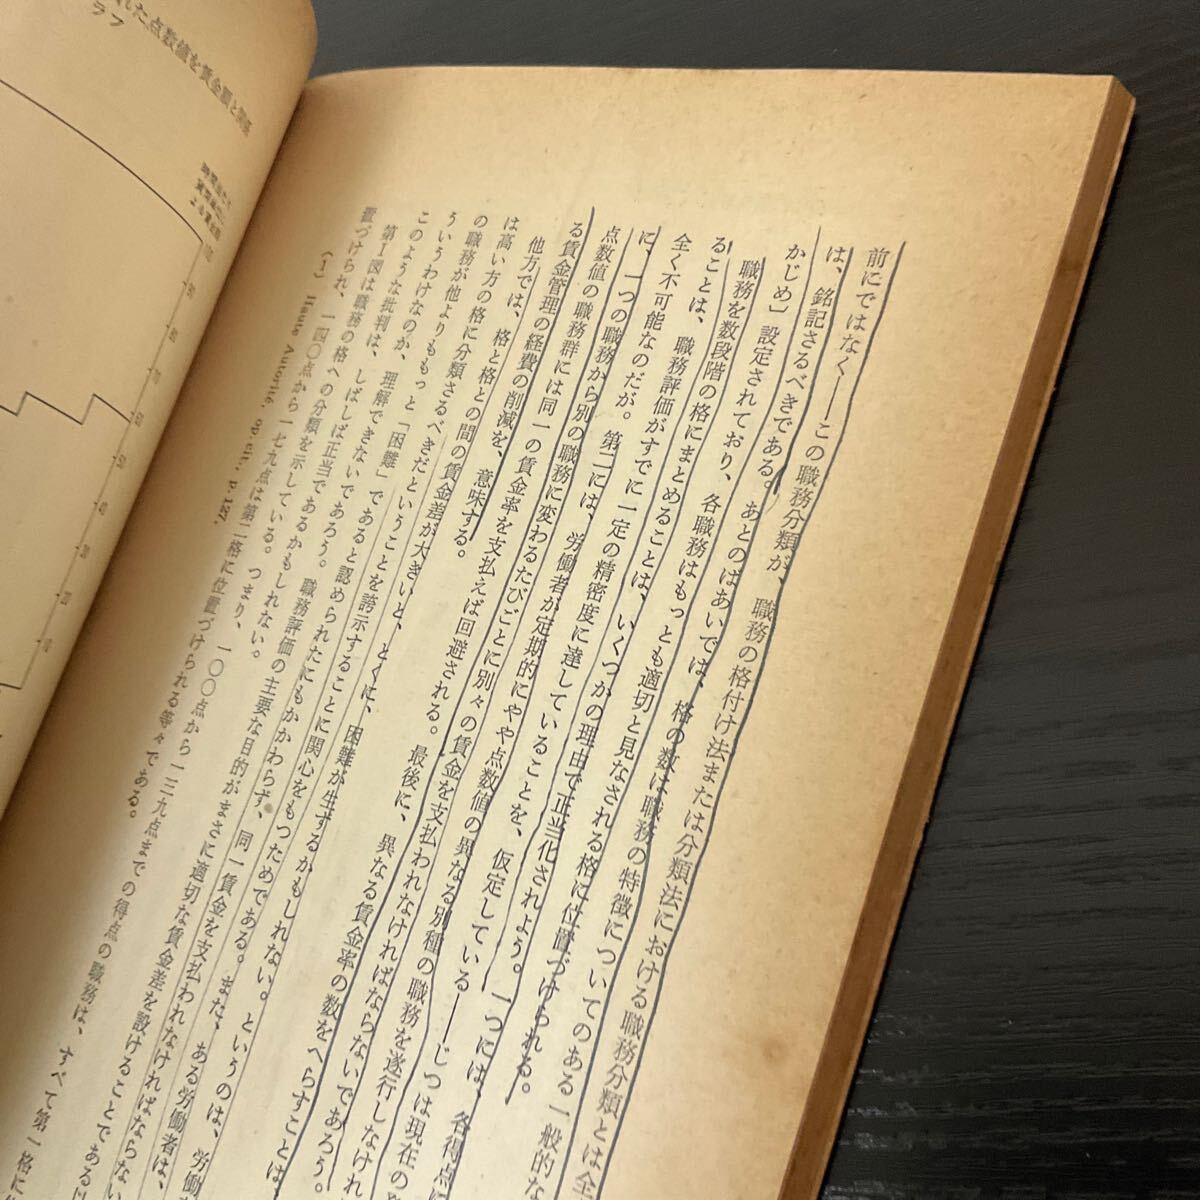 前にではなく――この職務分類が、職務の格付け法または分類法における職務分類とは全
は、銘記さるべきである。
かじめ〕設定されており、あとのばあいでは、格の数は職務の特徴についてのある一般的な
職務を数段階の格にまとめることは、各職務はもっとも適切と見なされる格に位置づけられる。
ることは、職務評価がすでに一定の精密度に達していることを、仮定している――じつは現在の
全く不可能なのだが。第二には、労働者が定期的にやや点数値の異なる別種の職務を遂行しなけれ
に、一つの職務から別の職務に変わるたびごとに別々の賃金を支払われなければならないであろう。
点数値の職務群には同一の賃金率を支払えば回避される。最後に、異なる賃金率の数をへらすことは、
る賃金管理の経費の削減を、意味する。
他方では、格と格との間の賃金差が大きいと、とくに、困難が生ずるかもしれない。というのは、労働
は高い方の格に分類さるべきだということを誇示することに関心をもつためである。また、ある労働者は、
の職務が他よりももっと「困難」であると認められたにもかかわらず、同一賃金を支払われなければならない
ういうわけなのか、理解できないであろう。職務評価の主要な目的がまさに適切な賃金差を設けることである以
このような批判は、しばしば正当であるかもしれない。
第Ⅰ図は職務の格への分類を示している。つまり、一〇〇点から一三九点までの得点の職務は、すべて第一格に
置づけられ、一四〇点から一七九点は第二格に位置づけられる等々である。
(1) Haute Autorité, op. cit., p. 127.
ラフ